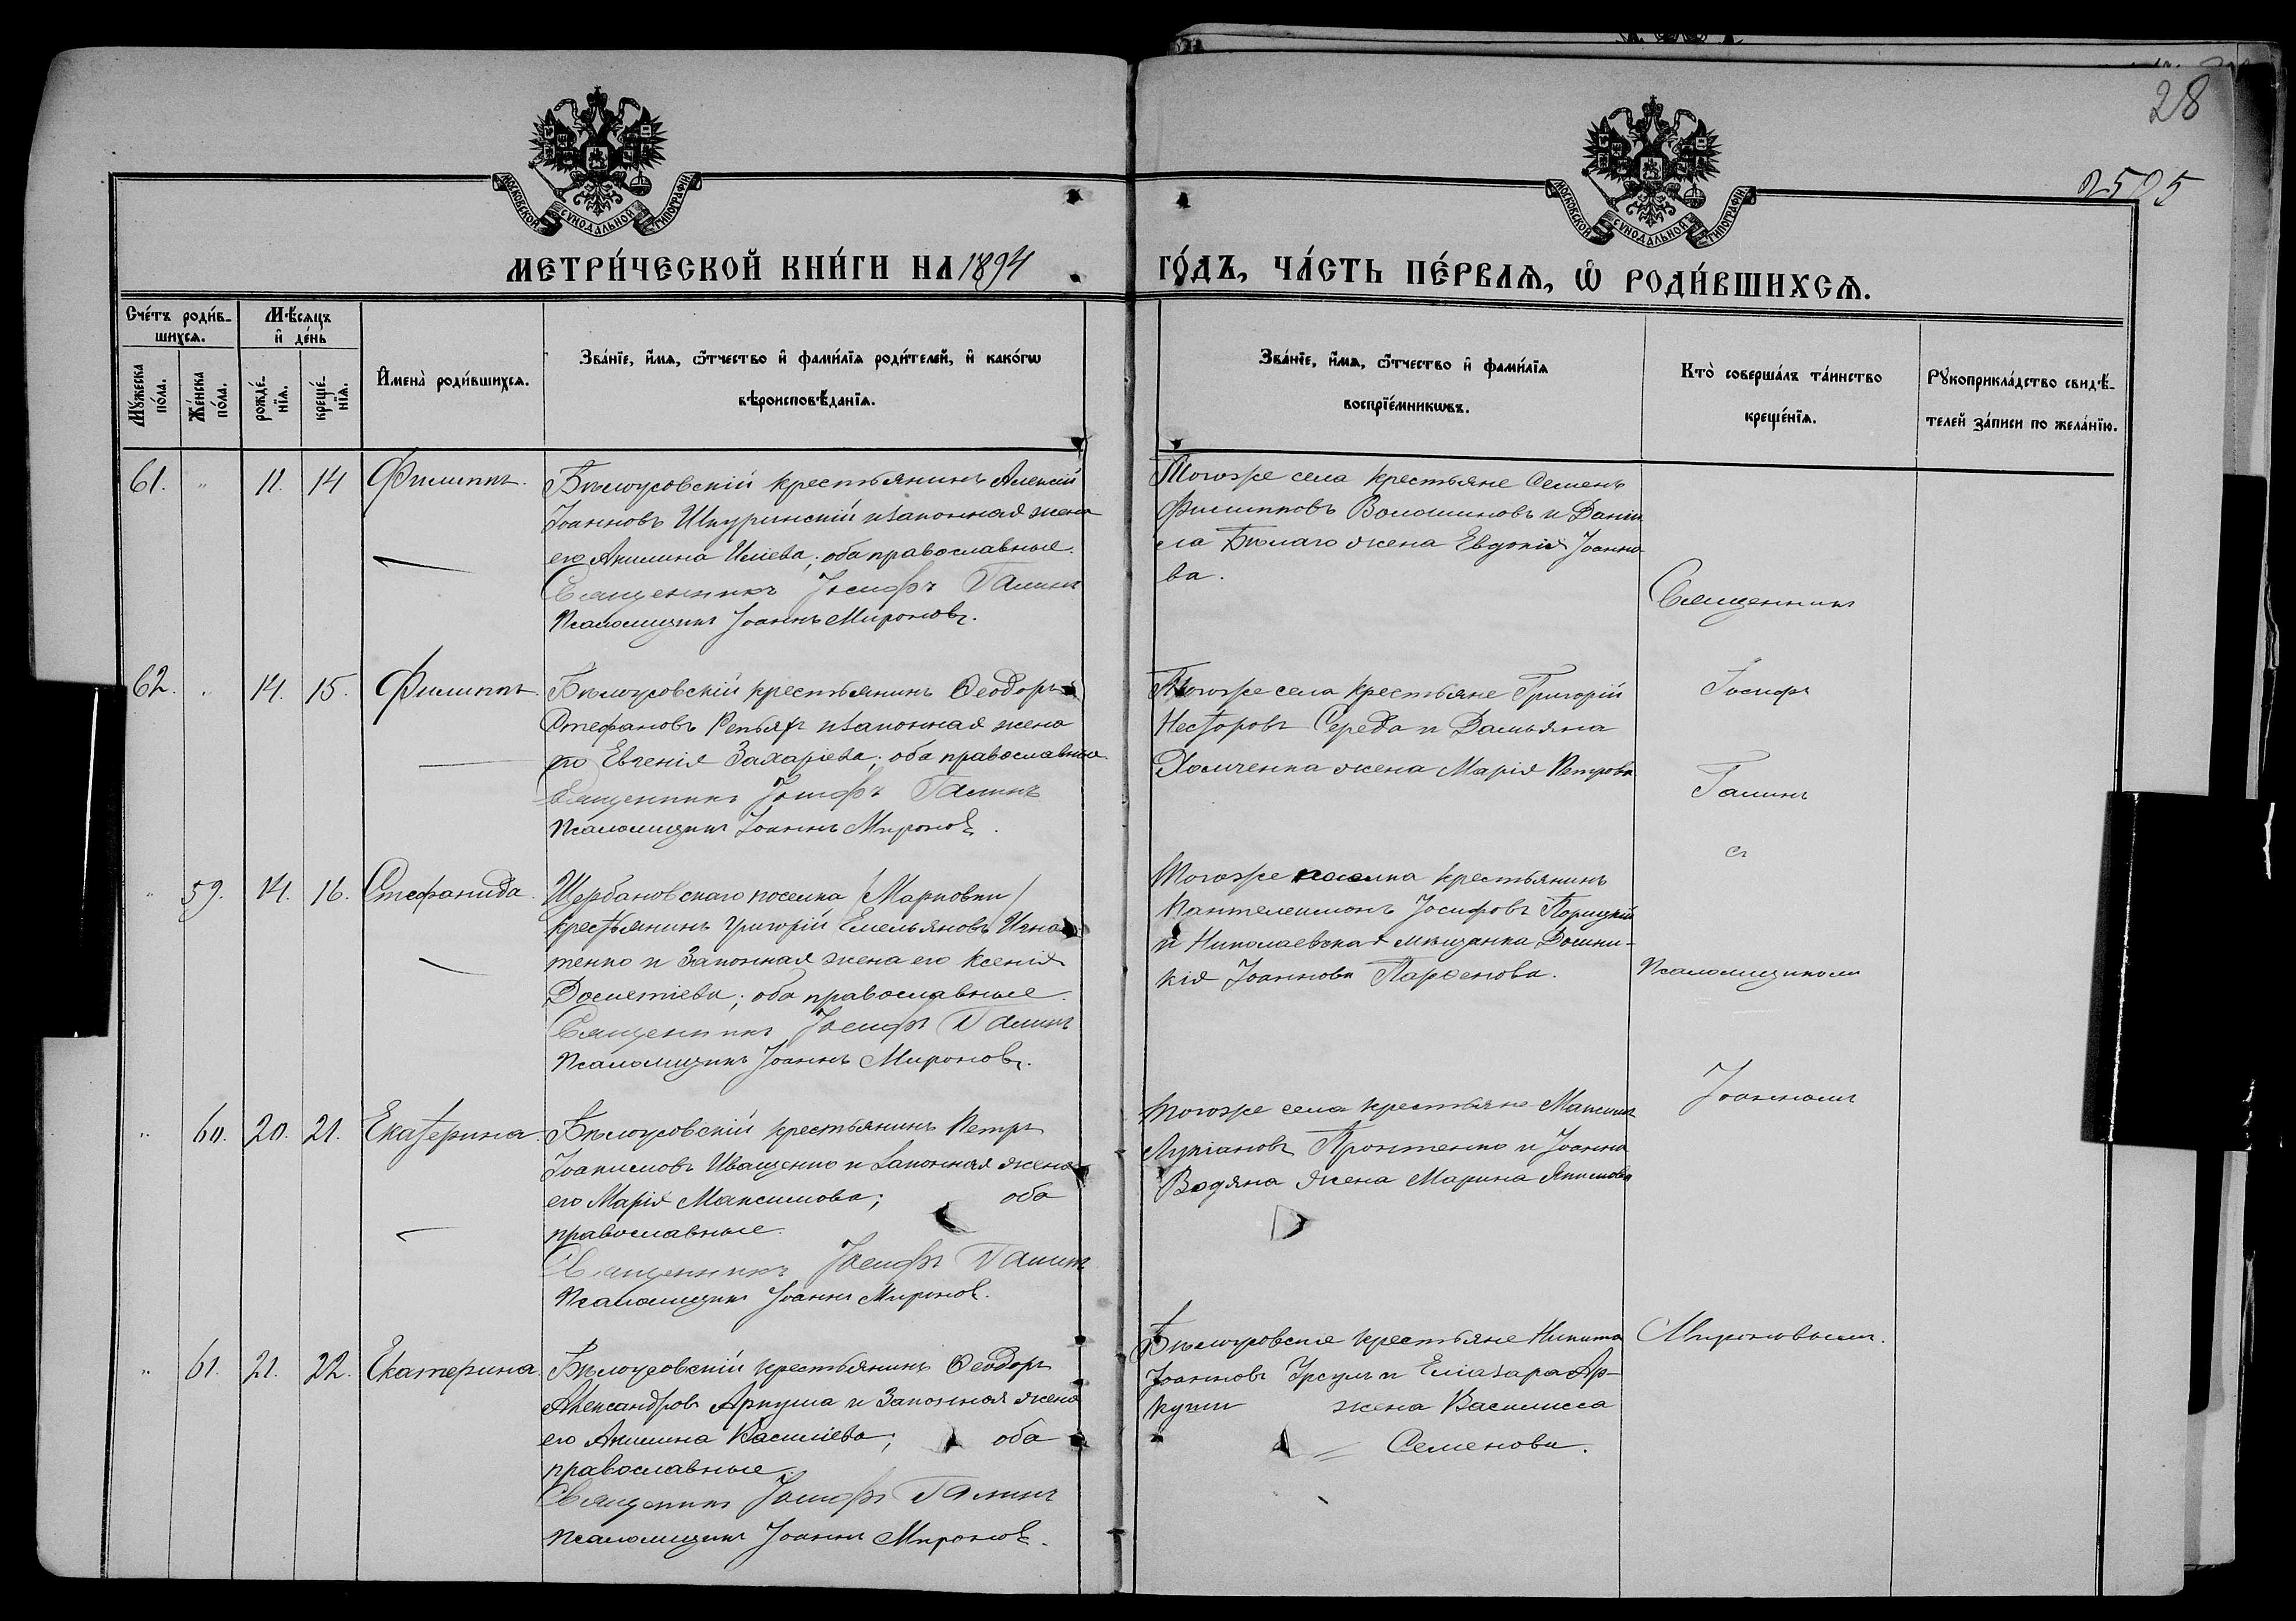 28
2505
МОСКОВСКОЙ СѴНОДАЛЬНОЙ ТИПОГРАФІИ
МОСКОВСКОЙ СѴНОДАЛЬНОЙ ТИПОГРАФІИ
МЕТРИ́ЧЕСКОЙ КНИ́ГИ НА 1894 ГО́ДЪ, ЧА́СТЬ ПЕ́РВАЯ, Ѡ РОДИ́ВШИХСЯ.
Сче́тъ роди́в-
шихся.
Мꙋ́жеска
по́ла.
Же́нска
по́ла.
Мѣ́сяцъ
и҆ де́нь
рожде́-
нїя.
креще́-
нїя.
И҆мена̀ роди́вшихся.
Зва́нїе, и҆́мя, ѻ҆́тчество и҆ фами́лїя роди́телей, и҆ како́гѡ
вѣроисповѣ́данїя.
Зва́нїе, и҆́мя, ѻ҆́тчество и҆ фами́лїя
воспрїе́мникѡвъ.
Кто̀ соверша́лъ та́инство
креще́нїя.
Рꙋкоприкла́дство свидѣ́-
телей за́писи по жела́нїю.
61. " 11. 14 Филиппъ.
Бѣлоусовскій крестьянинъ Алексій
Іоанновъ Шкуринскій и законная жена
его Акилина Иліева; оба православные.
Священникъ Іосифъ Галинъ
Псаломщикъ Іоаннъ Мироновъ.
Тогоже села крестьяне Семенъ
Филипповъ Волошиновъ и Даніи
ла Бѣлаго жена Евдокія Іоанно
ва.
62. " 14. 15. Филиппъ.
Бѣлоусовскій крестьянинъ Ѳеодоръ
Стефановъ Репьяхъ и законная жена
его Евгенія Захаріева; оба православные
Священникъ Іосифъ Галинъ
Псаломщикъ Іоаннъ Мироновъ.
Тогоже села крестьяне Григорій
Несторовъ Середа и Дамьяна
Хомченка жена Марія Петрова
" 59. 14. 16. Стефанида.
Щербановскаго поселка /Марковки/
крестьянинъ Григорій Емельяновъ Игна
тенко и законная жена его Ксенія
Дометіева; оба православные.
Священникъ Іосифъ Галинъ
Псаломщикъ Іоаннъ Мироновъ.
Тогоже поселка крестьянинъ
Пантелеимонъ Іосифовъ Порицкій
и Николаевская мѣщанка Домни-
кія Іоаннова Парѳенова.
" 60. 20. 21. Екатерина.
Бѣлоусовскій крестьянинъ Петръ
Іоакимовъ Иващенко и законная жена
его Марія Максимова; оба
православные.
Священникъ Іосифъ Галинъ
Псаломщикъ Іоаннъ Мироновъ.
Тогоже села крестьяне Максимъ
Лукіановъ Пронтенко и Іоанна
Водяна жена Марина Якимова
" 61. 21. 22. Екатерина.
Бѣлоусовскій крестьянинъ Ѳеодоръ
Александровъ Аркуша и законная жена
его Акилина Василіева; оба
православные.
Священникъ Іосифъ Галинъ
Псаломщикъ Іоаннъ Мироновъ.
Бѣлоусовскіе крестьяне Никита
Іоанновъ Урсулъ и Елиазара Ар-
куши жена Василисса
Семенова.
Священникъ
Іосифъ
Галинъ
съ
Псаломщикомъ
Іоанномъ
Мироновымъ.